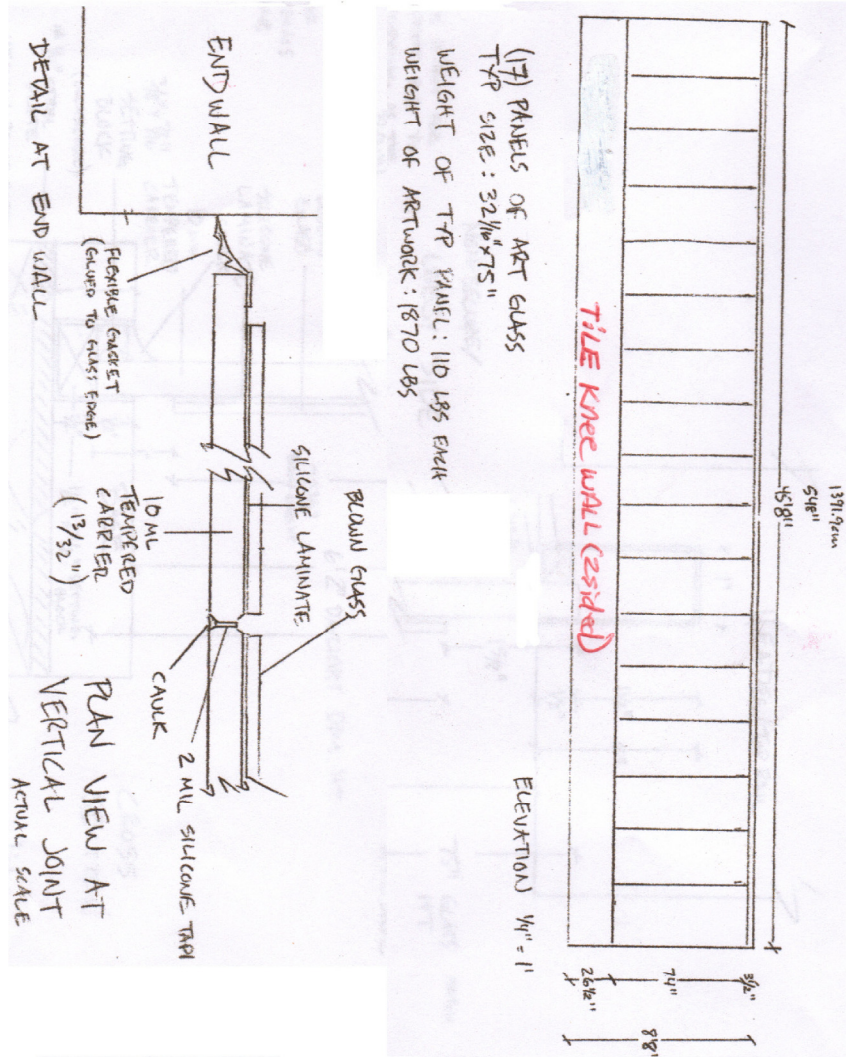 1391.9cm
548"
45'8"
TILE Knee WALL (2sided)
3½"
74"
26½"
8'8"
(17) PANELS OF ART GLASS
TYP SIZE: 32 1/16" x 75"
WEIGHT OF TYP PANEL: 110 LBS EACH
WEIGHT OF ARTWORK: 1870 LBS
ELEVATION ¼" = 1'
ENDWALL
FLEXIBLE GASKET
(GLUED TO GLASS EDGE)
DETAIL AT END WALL
BLOWN GLASS
SILICONE LAMINATE
10 ML
TEMPERED
CARRIER
(13/32")
CAULK
2 MIL SILICONE TAPE
PLAN VIEW AT
VERTICAL JOINT
ACTUAL SCALE